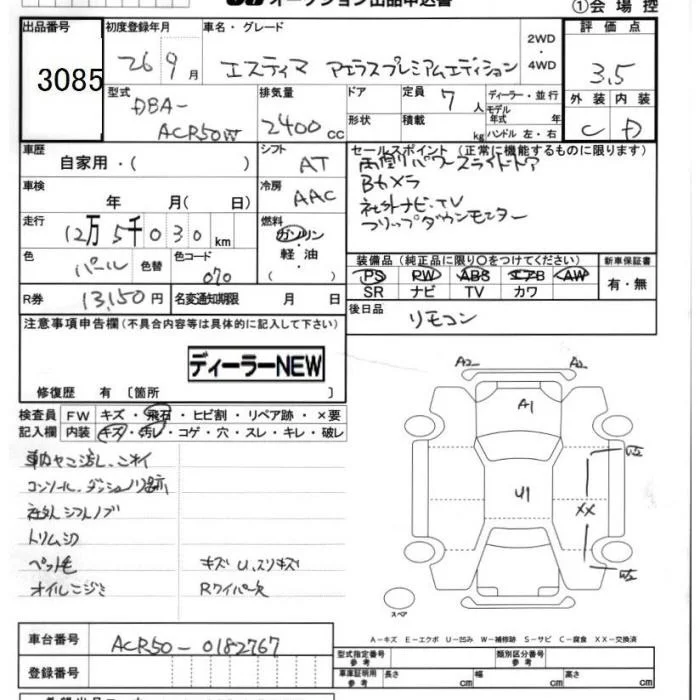 オークション出品申込書
①会場控
出品番号
3085
初度登録年月
26 9月
車名・グレード
エスティマ アエラスプレミアムエディション
2WD・4WD
評価点
3.5
外装 内装
C D
型式
DBA-
ACR50W
排気量
2400cc
ドア
形状
定員 7人
積載 kg
ディーラー・並行
モデル年式 年
ハンドル 左・右
車歴
自家用・( )
シフト
AT
セールスポイント(正常に機能するものに限ります)
両側パワースライドドア
Bカメラ
社外ナビ・TV
フリップダウンモニター
車検
年 月( 日)
冷房
AAC
走行
12万5千030km
燃料
ガソリン
軽油
( )
色
パール
色替
色コード
070
装備品(純正品に限り○をつけてください)
PS PW ABS エアB AW
SR ナビ TV カワ
新車保証書
有・無
R券
13,150円
名変通知期限 月 日
後日品
リモコン
注意事項申告欄(不具合内容等は具体的に記入して下さい)
ディーラーNEW
修復歴 有〔箇所 〕
検査員記入欄
FW キズ・飛石・ヒビ割・リペア跡・×要
内装 キズ・汚レ・コゲ・穴・スレ・キレ・破レ
コンソール、ダッシュノリ跡
社外シフトノブ
トリムシワ
ペット毛
オイルニジミ
キズ U、スリキズ
Rワイパー欠
A2
A1
U1
XX
スペア
A-キズ E-エクボ U-凹み W-補修跡 S-サビ C-腐食 XX-交換済
車台番号
ACR50-0182767
登録番号
型式指定番号 参考
類別区分番号 参考
車庫証明用 参考
長さ cm
幅 cm
高さ cm